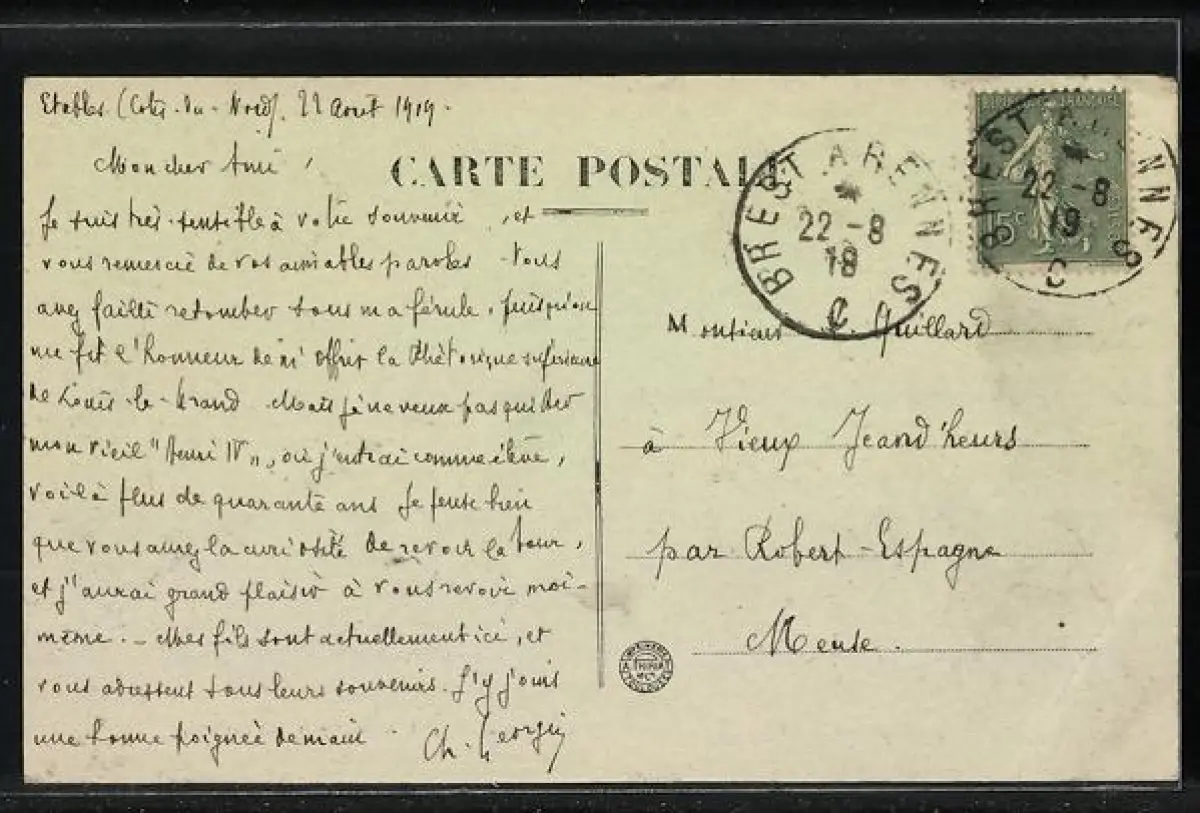 Etables (Côtes-du-Nord), 22 Août 1919.
Mon cher Ami,
CARTE POSTALE
Je suis très sensible à votre souvenir, et
vous remercie de vos aimables paroles. Vous
avez failli retomber sous ma férule, puisqu'on
me fit l'honneur de m'offrir la Rhétorique supérieure
de Louis-le-Grand. Mais je ne veux pas quitter
mon vieil "Henri IV", où j'entrai comme élève,
voilà plus de quarante ans. Je pense bien
que vous aurez la curiosité de revoir la tour,
et j'aurai grand plaisir à vous revoir moi-
même. - Mes fils sont actuellement ici, et
vous adressent tous leurs souvenirs. J'y joins
une bonne poignée de main
Ch. Georgin
BREST A RENNES
22 -8
19
C
BREST A RENNES
22 -8
19
C
15c
Monsieur Quillard
à Vieux Jeand'heurs
par Robert-Espagne
Meuse.